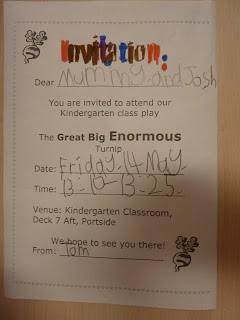 Invitation:
Dear Mummy and Josh
You are invited to attend our
Kindergarten class play
The Great Big Enormous
Turnip
Date: Friday 14 May.
Time: 13-10-13-25.
Venue: Kindergarten Classroom,
Deck 7 Aft, Portside
We hope to see you there!
From: Tom